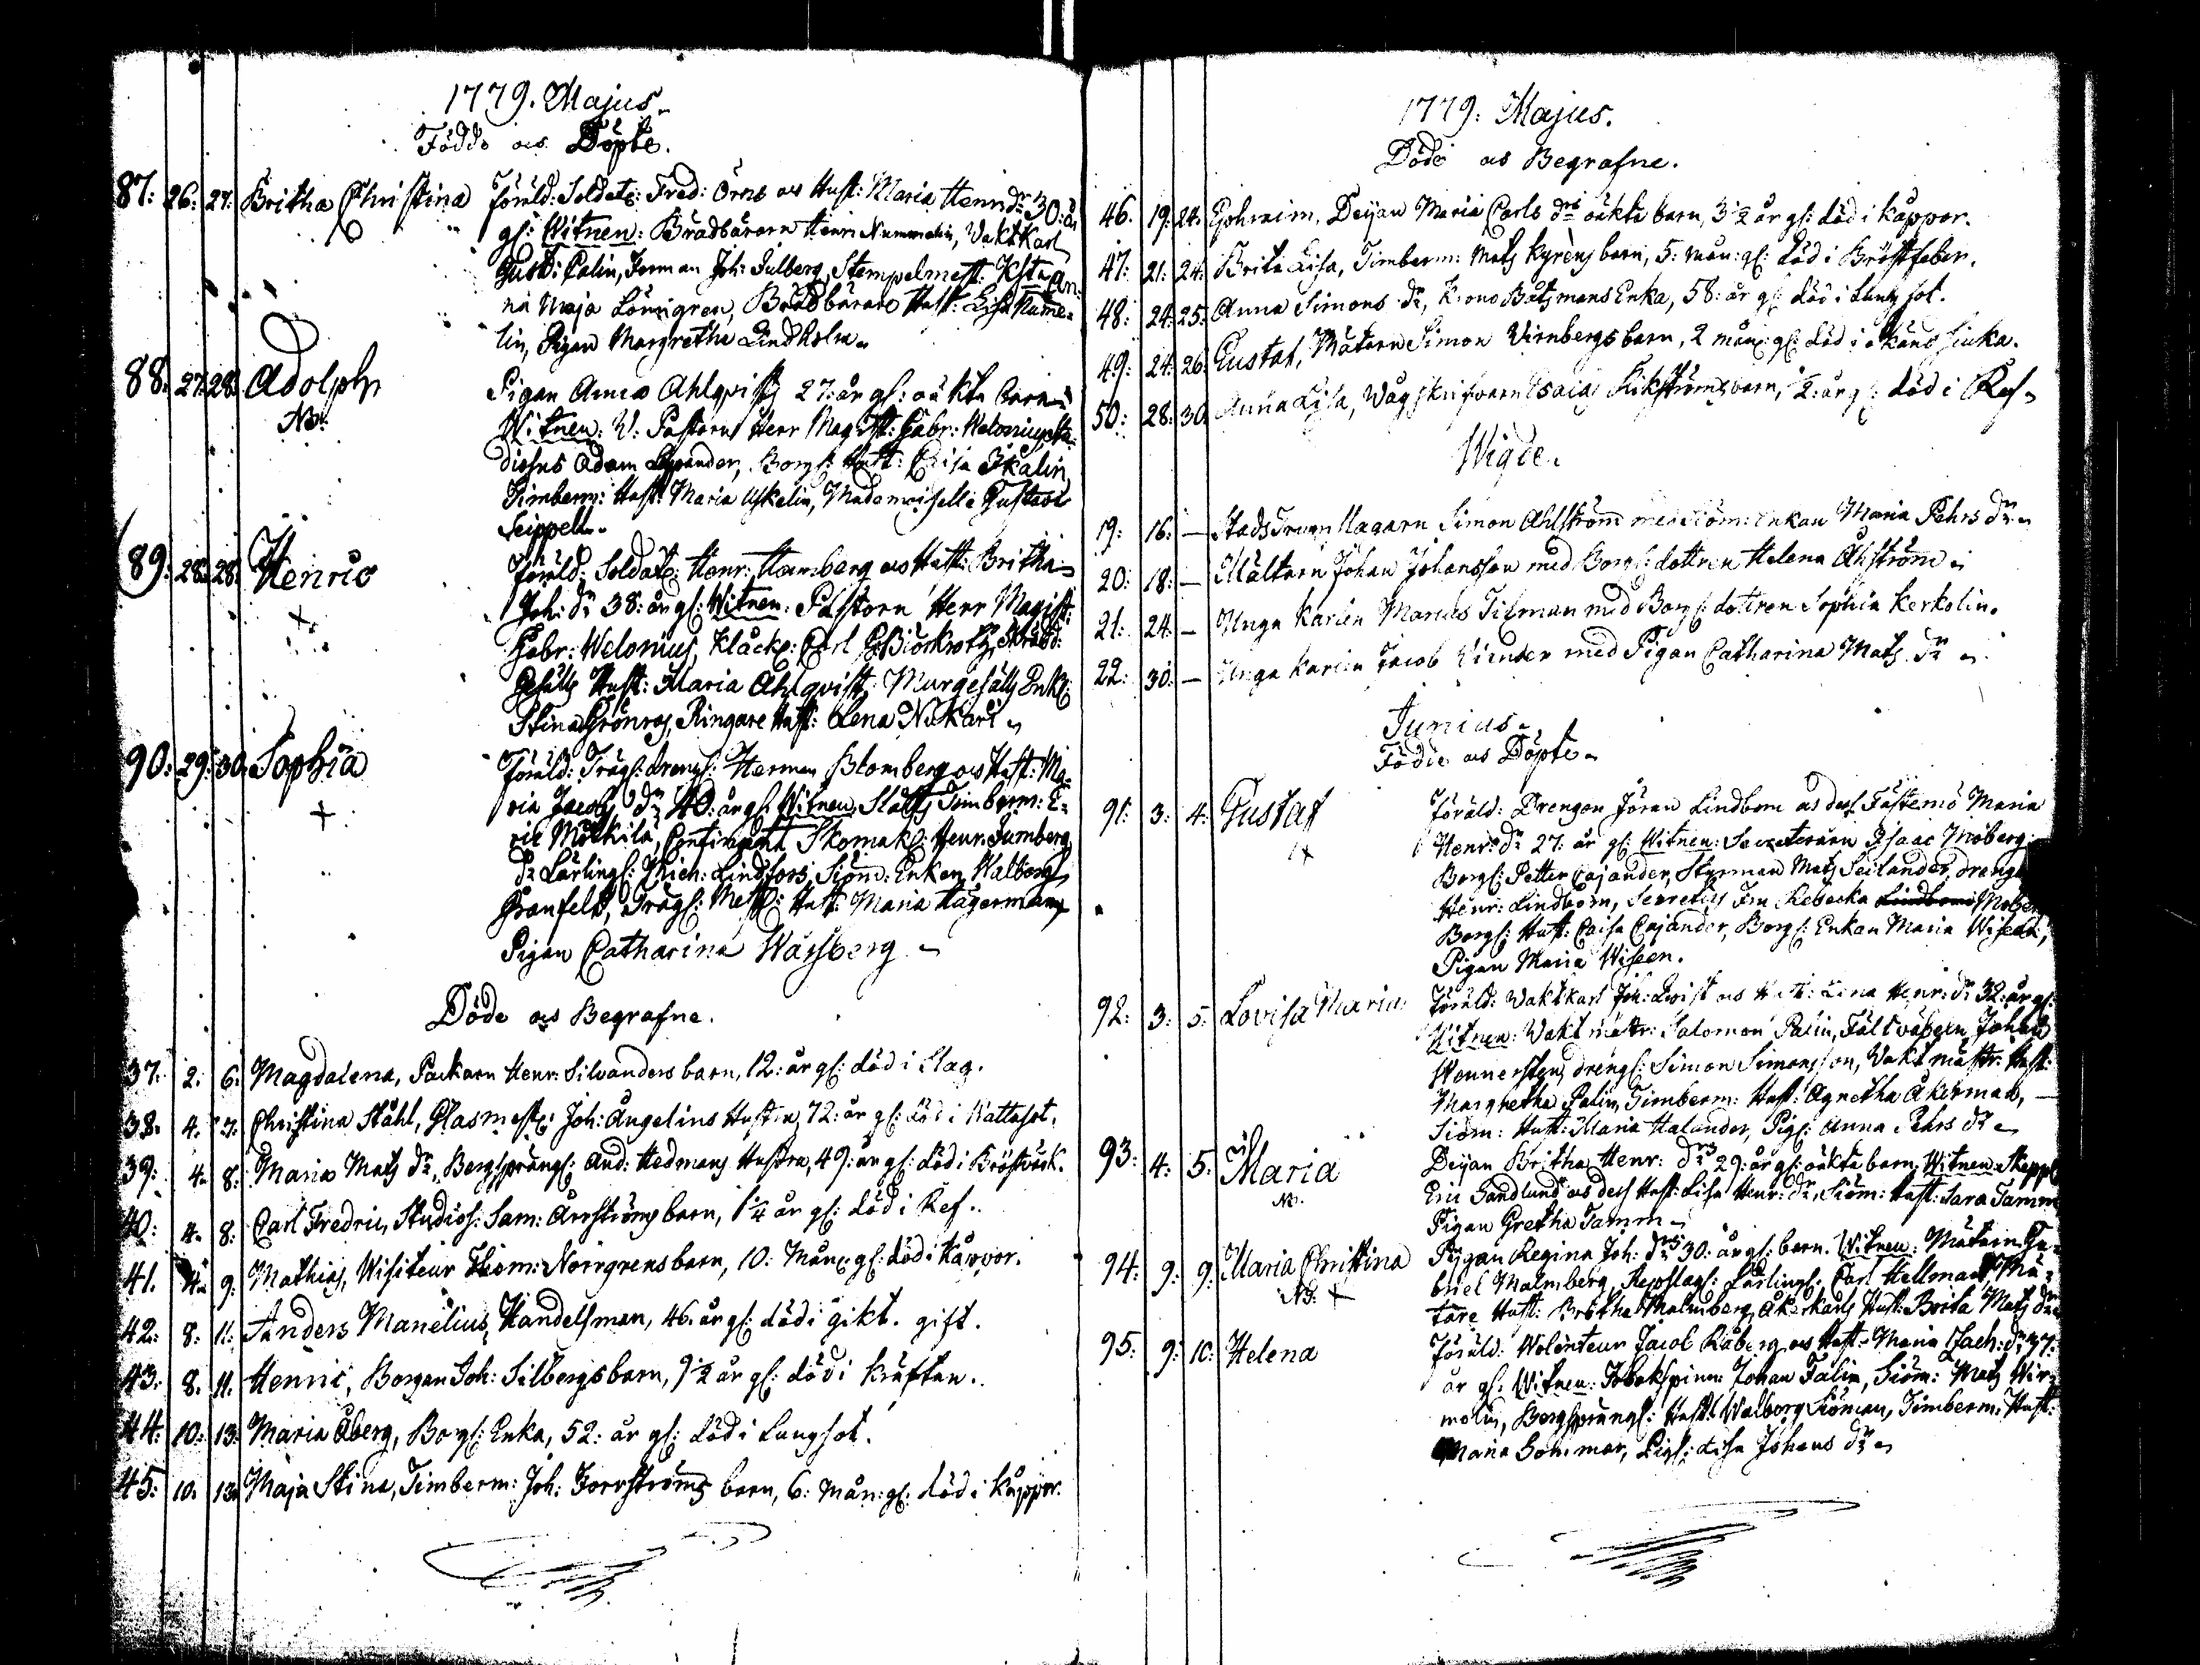 1779. Majus.
Födde och Döpte.
87: 26: 27: Britha Christina Föräld: Soldate: Fred: Örns och Hust: Maria Henr: dr 30: år
gl: Witnen: Brädbäraren Henr: Nummelin, Vaktkarl
Gust: Palin, Forman Joh: Julberg, Stempelmest: Hstr An-
na Maja Lönngren, Brädbärare Hust: Lisa Numme-
lin, Pigan Margretha Lindholm
88. 27. 28. Adolph Pigan Anna Ahlqvists 27: år gl: oäkta barn
NB. Witnen: V: Pastorn Herr Magist: Gabr: Welonius, Stu-
diosus Adam Cajander, Borgl: Hust: Caisa Ikalin,
Timberm: Hust: Maria Askelin, Mademoiselle Gustava
Seippell
89: 28: 28: Henric Föräld: Soldate: Henr: Hamberg och Hust: Britha
Joh: dr 38: år gl: Witnen: Pastorn Herr Magist:
Gabr: Welonius, Klåck: Carl Biörkroth, Skräd:
Gesälls Hust: Maria Ahlqvist, Murgesälls Enk:
Stina Grönros, Ringare Hust: Lena Nikari
90: 29: 30. Sophia Föräld: Trägl: drengl: Herman Blomberg och Hust: Ma-
ria Jacobs dr 40: år gl: Witnen: Slotts Timberm: E-
ric Mökkilä, Contingent Skomak: Henr: Tamberg
dr Lärlingl: Mich: Lindfors, Siöm: Enkan Walborg
Granfelt, Trägl: Mest: Hust: Maria Hagerman,
Pigan Catharina Wassberg
Döde och Begrafne.
37. 2. 6. Magdalena, Packarn Henr: Silvanders barn, 12: år gl: död i Slag.
38. 4. 7. Christina Ståhl, Glasmest: Joh: Ångelins Hustru, 72: år gl: död i Wattusot.
39: 4. 8: Maria Mats dr, Bergsprängl: And: Hedmans Hustru, 49: år gl: död i Bröstvärk.
40: 4. 8: Carl Fredric, Studios: Sam: Årrströms barn, 1 1/4 år gl: död i Ref.
41. 4. 9: Mathias, Visiteur Thom: Norrgrens barn, 10: Mån: gl: död i Kåppor.
42: 8: 11: Anders Manelius, Handelsman, 46. år gl: död i gikt. gift.
43: 8. 11. Henric, Borgen Joh: Silbergs barn, 9 1/2 år gl: död i Kräftan.
44: 10: 13: Maria Åberg, Borgl: Enka, 52: år gl: död i Lungsot.
45: 10. 13. Maja Stina, Timberm: Joh: Forsströms barn, 6: Mån: gl: död i Kåppor.
1779: Majus.
Döde och Begrafne.
46. 19: 24: Ephraim, Deijan Maria Carls drs oäkta barn, 3 1/2 år gl: död i Kåppor.
47: 21: 24: Brita Lisa, Timberm: Mats Kyrèns barn, 5: mån: gl: död i Bröstfeber.
48: 24: 25: Anna Simons dr, Krono Båtsmans Enka, 58: år gl: död i Lungsot.
49: 24: 26: Gustaf, Mätarn Simon Virnbergs barn, 2 mån: gl: död i okänd siuka.
50: 28: 30. Anna Lisa, Vågskrifvarn Esaias Kikströms barn, 1/2: år gl: död i Ref
Wigde.
19: 16: — Stads Simon Ahlström med Siöm: Enkan Maria Pehrs dr
20: 18: — Mältarn Johan Johansson med Borgl: dottren Helena Åhström
21: 24: — Unga Karlen Marcus Tilman med Borgl: dottren Sophia Kerkolin.
22: 30: — Unga Karlen Jacob med Pigan Catharina Mats dr
Junius.
Födde och Döpte
91: 3: 4: Gustaf Föräld: Drengen Jöran Lindbom och dess Fästemö Maria
Henr: dr 27. år gl: Witnen: Secreteraren Isaac Moberg
Borgl: Petter Cajander, Styrman Mats Seilander, dreng
Henr: Lindbom, Secretl: Fru Rebecka Lindbom Mober
Borgl: Hust: Caisa Cajander, Borgl: Enkan Maria
Pigan Maria Viseen.
92: 3: 5: Lovisa Maria Föräld: Vaktkarl Joh: Qvist och Hust: Lena Henr: dr 32: år gl:
Witnen: Vaktmästr: Salomon Palin, Fältväbeln Johan
Wennersten, drengl: Simon Simonsson, Vaktmästr: Hust:
Margretha Palin, Timberm: Hust: Agnetha Åkerman,
Siöm: Hust: Maria Halander, Pigl: Anna Pehrs dr
93: 4: 5: Maria Deijan Britha Henr: drs 29: år gl: oäkta barn. Witnen: Skepp
NB. Eric Sandlund och dess Hust: Lisa Henr: dr, Siöm: Hust: Sara Tamm
Pigan Gretha Tamm
94: 9: 9: Maria Christina Pigan Regina Joh: drs 30: år gl: barn. Witnen: Mätarn Ga-
NB. briel Malmberg, Repslagl: Lärlingl: Carl Hellman, Mä-
tare Hust: Britha Malmberg, Åkerkarls Hust: Brita Mats dr
95: 9: 10: Helena Föräld: Volonteur Jacob Råberg och Hust: Maria Zach: dr 37:
år gl: Witnen: Tobakspinn: Johan Talin, Siöm: Mats Wir-
molin, Bergsprängl: Hust: Walborg Siöman, Timberm: Hust:
Maria Sommar, Pigl: Lisa Johans dr